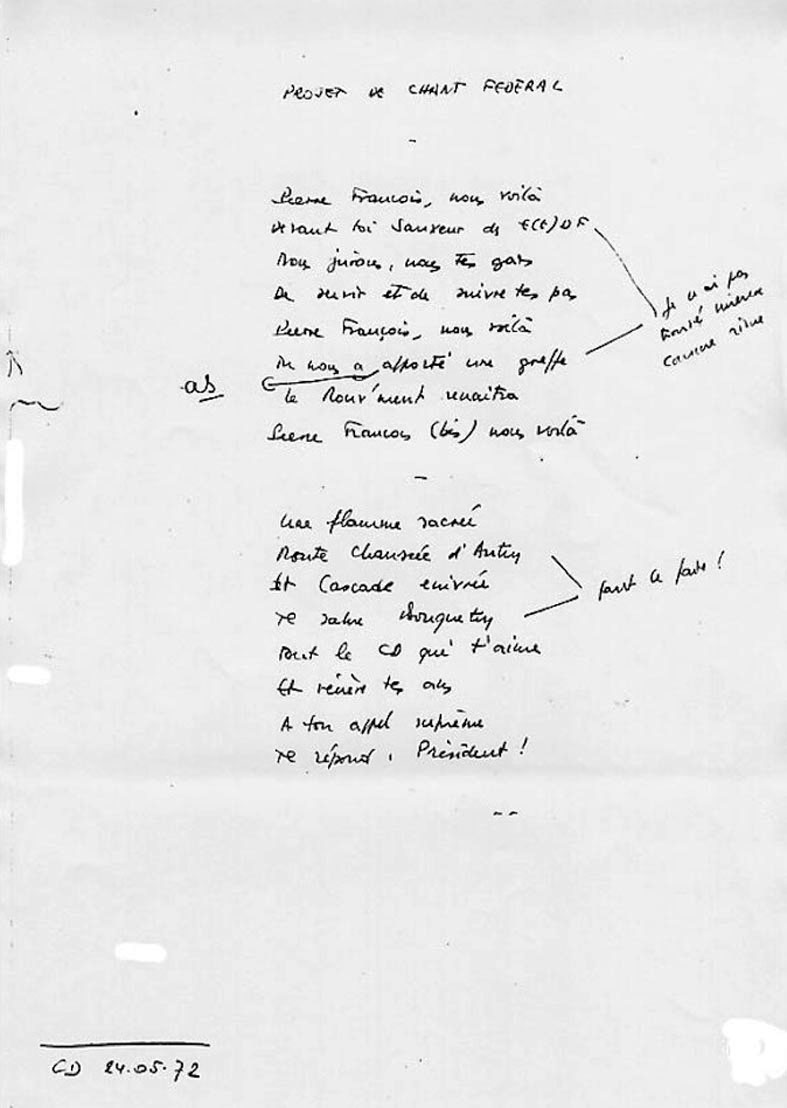 PROJET DE CHANT FEDERAL
-
Pierre François, nous voilà
Devant toi Sauveur des E(E)DF
Nous jurons, nous tes gars
De servir et de suivre tes pas
Je n'ai pas
trouvé mieux
comme rime
Pierre François, nous voilà
Tu nous a apporté une greffe
as
Le Mouv'ment renaitra
Pierre François (bis) nous voilà
-
Une flamme sacrée
Monte Chaussée d'Antin
Et Cascade enivrée
Te salue Bouquetin
faut le faire !
Tout le CD qui t'aime
Et vénère tes ans
A ton appel suprême
Te répond, Président !
--
CD 24.05.72